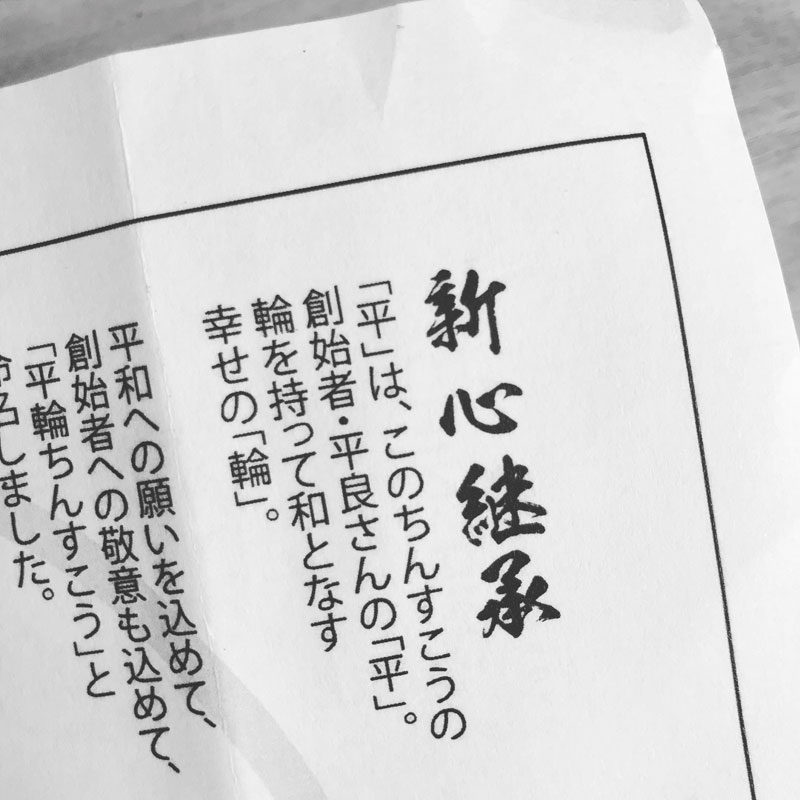 新心継承
「平」は、このちんすこうの
創始者・平良さんの「平」。
輪を持って和となす
幸せの「輪」。
平和への願いを込めて、
創始者への敬意も込めて、
「平輪ちんすこう」と
命名しました。